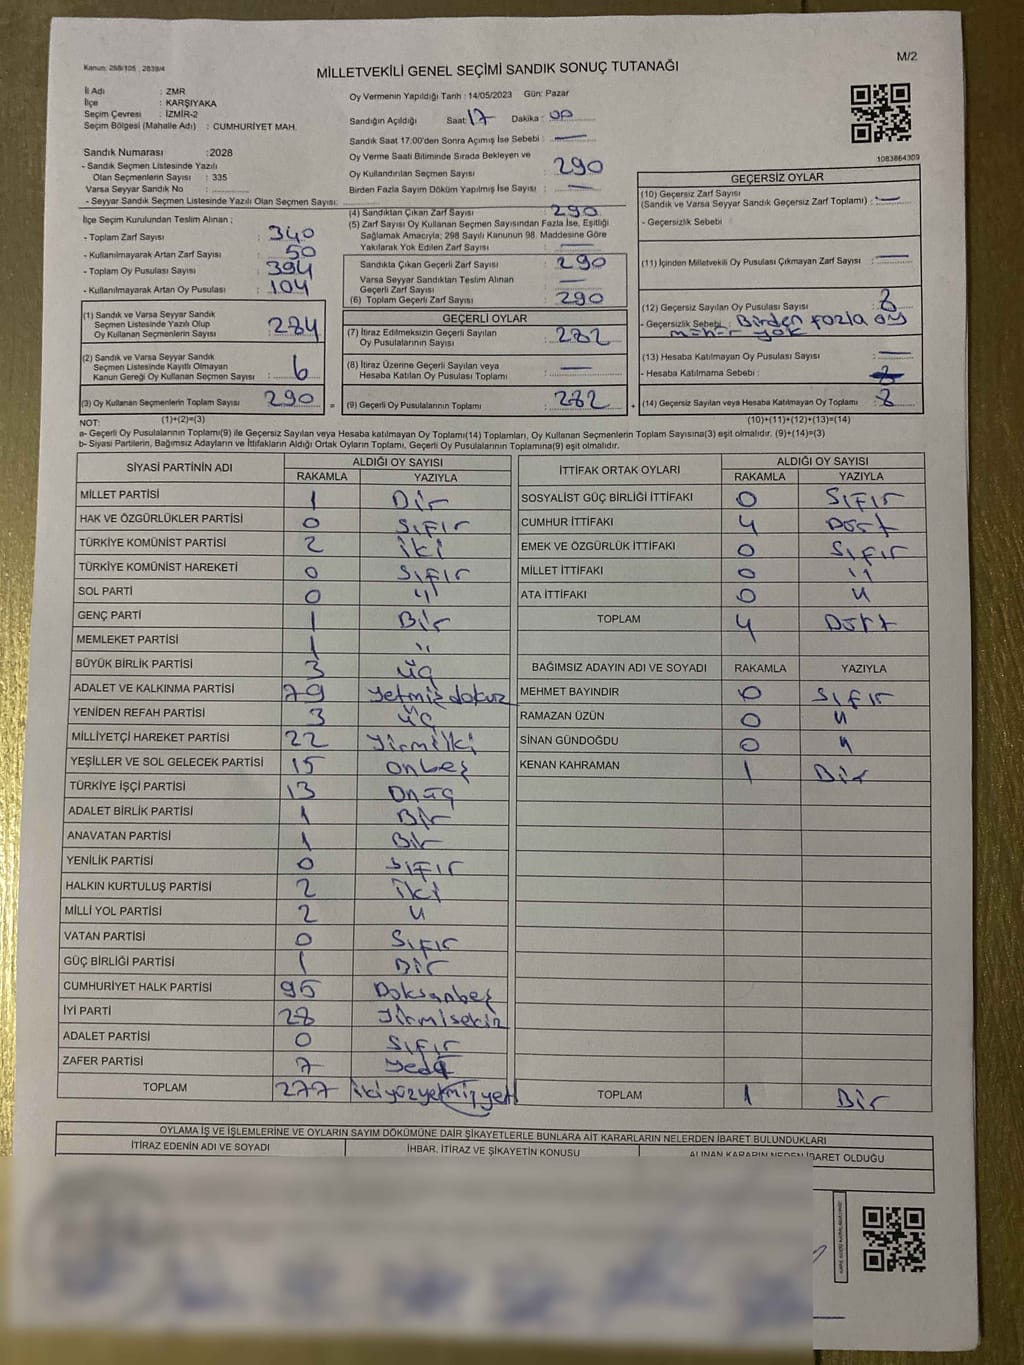 Kanun, 298/105 , 2839/4
M/2
MİLLETVEKİLİ GENEL SEÇİMİ SANDIK SONUÇ TUTANAĞI
İl Adı : ZMR
İlçe : KARŞIYAKA
Seçim Çevresi : İZMİR-2
Seçim Bölgesi (Mahalle Adı) : CUMHURİYET MAH.
Sandık Numarası : 2028
- Sandık Seçmen Listesinde Yazılı
Olan Seçmenlerin Sayısı : 335
Varsa Seyyar Sandık No :
- Seyyar Sandık Seçmen Listesinde Yazılı Olan Seçmen Sayısı:
İlçe Seçim Kurulundan Teslim Alınan ;
- Toplam Zarf Sayısı : 340
- Kullanılmayarak Artan Zarf Sayısı : 50
- Toplam Oy Pusulası Sayısı : 394
- Kullanılmayarak Artan Oy Pusulası : 104
(1) Sandık ve Varsa Seyyar Sandık
Seçmen Listesinde Yazılı Olup
Oy Kullanan Seçmenlerin Sayısı : 284
(2) Sandık ve Varsa Seyyar Sandık
Seçmen Listesinde Kayıtlı Olmayan
Kanun Gereği Oy Kullanan Seçmen Sayısı : 6
(3) Oy Kullanan Seçmenlerin Toplam Sayısı : 290
Oy Vermenin Yapıldığı Tarih : 14/05/2023 Gün: Pazar
Sandığın Açıldığı Saat: 17 Dakika : 00
Sandık Saat 17:00'den Sonra Açılmış İse Sebebi : —
Oy Verme Saati Bitiminde Sırada Bekleyen ve
Oy Kullandırılan Seçmen Sayısı : 290
Birden Fazla Sayım Döküm Yapılmış İse Sayısı : —
(4) Sandıktan Çıkan Zarf Sayısı : 290
(5) Zarf Sayısı Oy Kullanan Seçmen Sayısından Fazla İse, Eşitliği
Sağlamak Amacıyla; 298 Sayılı Kanunun 98. Maddesine Göre
Yakılarak Yok Edilen Zarf Sayısı : —
Sandıkta Çıkan Geçerli Zarf Sayısı : 290
Varsa Seyyar Sandıktan Teslim Alınan
Geçerli Zarf Sayısı : —
(6) Toplam Geçerli Zarf Sayısı : 290
GEÇERLİ OYLAR
(7) İtiraz Edilmeksizin Geçerli Sayılan
Oy Pusulalarının Sayısı : 282
(8) İtiraz Üzerine Geçerli Sayılan veya
Hesaba Katılan Oy Pusulası Toplamı : —
= (9) Geçerli Oy Pusulalarının Toplamı : 282
1083864309
GEÇERSİZ OYLAR
(10) Geçersiz Zarf Sayısı
(Sandık ve Varsa Seyyar Sandık Geçersiz Zarf Toplamı) : —
- Geçersizlik Sebebi :
(11) İçinden Milletvekili Oy Pusulası Çıkmayan Zarf Sayısı : —
(12) Geçersiz Sayılan Oy Pusulası Sayısı : 8
- Geçersizlik Sebebi : Birden fazla oy
mühür yok
(13) Hesaba Katılmayan Oy Pusulası Sayısı : —
- Hesaba Katılmama Sebebi :
+ (14) Geçersiz Sayılan veya Hesaba Katılmayan Oy Toplamı : 8
NOT: (1)+(2)=(3) (10)+(11)+(12)+(13)=(14)
a- Geçerli Oy Pusulalarının Toplamı(9) ile Geçersiz Sayılan veya Hesaba katılmayan Oy Toplamı(14) Toplamları, Oy Kullanan Seçmenlerin Toplam Sayısına(3) eşit olmalıdır. (9)+(14)=(3)
b- Siyasi Partilerin, Bağımsız Adayların ve İttifakların Aldığı Ortak Oyların Toplamı, Geçerli Oy Pusulalarının Toplamına(9) eşit olmalıdır.
SİYASİ PARTİNİN ADI ALDIĞI OY SAYISI
RAKAMLA YAZIYLA
MİLLET PARTİSİ 1 Bir
HAK VE ÖZGÜRLÜKLER PARTİSİ 0 Sıfır
TÜRKİYE KOMÜNİST PARTİSİ 2 iki
TÜRKİYE KOMÜNİST HAREKETİ 0 Sıfır
SOL PARTİ 0 "
GENÇ PARTİ 1 Bir
MEMLEKET PARTİSİ 1 "
BÜYÜK BİRLİK PARTİSİ 3 üç
ADALET VE KALKINMA PARTİSİ 79 Yetmiş dokuz
YENİDEN REFAH PARTİSİ 3 üç
MİLLİYETÇİ HAREKET PARTİSİ 22 Yirmiiki
YEŞİLLER VE SOL GELECEK PARTİSİ 15 Onbeş
TÜRKİYE İŞÇİ PARTİSİ 13 Onüç
ADALET BİRLİK PARTİSİ 1 Bir
ANAVATAN PARTİSİ 1 Bir
YENİLİK PARTİSİ 0 Sıfır
HALKIN KURTULUŞ PARTİSİ 2 iki
MİLLİ YOL PARTİSİ 2 "
VATAN PARTİSİ 0 Sıfır
GÜÇ BİRLİĞİ PARTİSİ 1 Bir
CUMHURİYET HALK PARTİSİ 95 Doksanbeş
İYİ PARTİ 28 Yirmisekiz
ADALET PARTİSİ 0 Sıfır
ZAFER PARTİSİ 7 Yedi
TOPLAM 277 ikiyüzyetmişyedi
İTTİFAK ORTAK OYLARI ALDIĞI OY SAYISI
RAKAMLA YAZIYLA
SOSYALİST GÜÇ BİRLİĞİ İTTİFAKI 0 Sıfır
CUMHUR İTTİFAKI 4 Dört
EMEK VE ÖZGÜRLÜK İTTİFAKI 0 Sıfır
MİLLET İTTİFAKI 0 "
ATA İTTİFAKI 0 "
TOPLAM 4 Dört
BAĞIMSIZ ADAYIN ADI VE SOYADI RAKAMLA YAZIYLA
MEHMET BAYINDIR 0 Sıfır
RAMAZAN ÜZÜN 0 "
SİNAN GÜNDOĞDU 0 "
KENAN KAHRAMAN 1 Bir
TOPLAM 1 Bir
OYLAMA İŞ VE İŞLEMLERİNE VE OYLARIN SAYIM DÖKÜMÜNE DAİR ŞİKAYETLERLE BUNLARA AİT KARARLARIN NELERDEN İBARET BULUNDUKLARI
İTİRAZ EDENİN ADI VE SOYADI İHBAR, İTİRAZ VE ŞİKAYETİN KONUSU ALINAN KARARIN NEDEN İBARET OLDUĞU